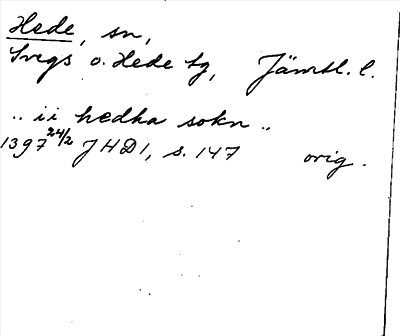 Hede, sn,
Svegs o. Hede tg, Jämtl. l.
.. ii hedha sokn ..
1397 24/2 JHD1, s. 147 orig.